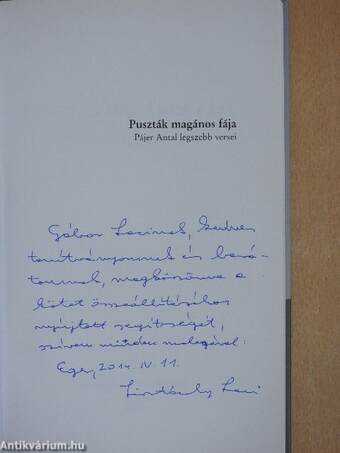 Puszták magános fája
Pájer Antal legszebb versei
Gábor Lacinak, kedves
tanítványomnak és bará-
tomnak, megköszönve a
kötet összeállításához
nyújtott segítségét,
szívem minden melegével:
Eger, 2014. IV. 11.
Laci
Antikvárium.hu